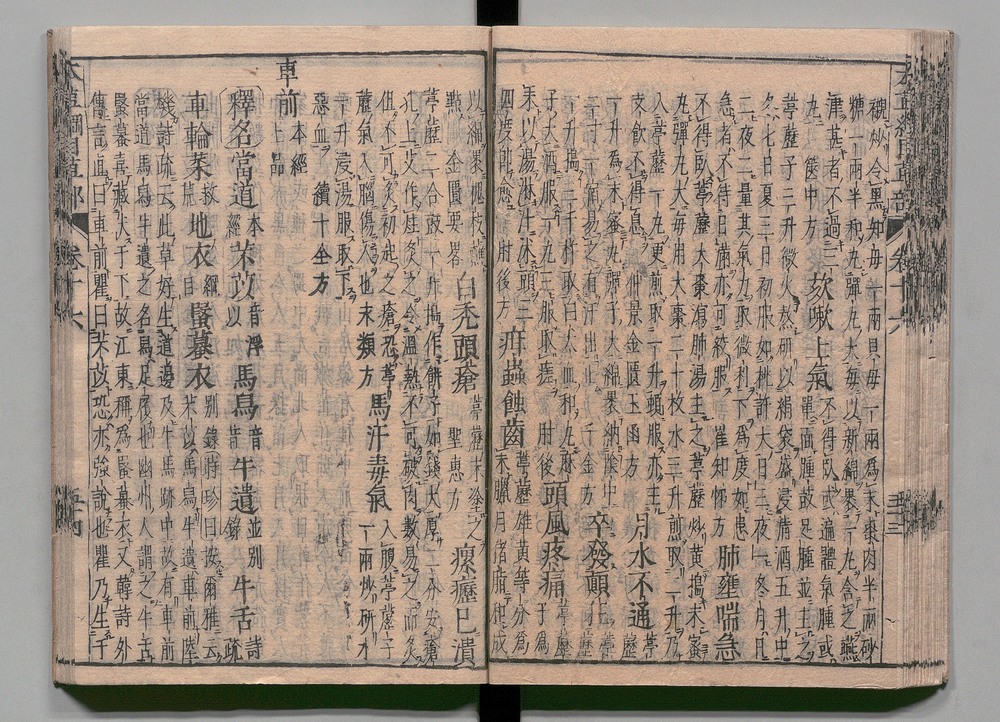 襯炒令黑知母一兩貝母一兩為末棗肉半兩砂
糖一兩半和丸彈丸大每以新綿裹一丸含之嚥
津甚者不過三丸篋中方 欬嗽上氣不得臥或遍體氣腫或
單面腫或足腫並主之
葶藶子三升微火熬研以絹袋盛浸清酒五升中
冬七日夏三日初服如桃許大日三夜一冬月日
二夜二量其氣力取微利一二為度如患
急者不待日滿亦可絞服崔知悌方 肺壅喘急
不得臥葶藶大棗瀉肺湯主之葶藶炒黃搗末蜜
丸彈丸大每用大棗二十枚水三升煎取二升乃
入葶藶一丸更煎取一升頓服亦主
支飲不得息仲景金匱玉函方 月水不通葶藶
一升為末蜜丸彈子大綿裹納陰中
二寸一宿易之有汁出止千金方 卒發顛狂葶藶
一升搗三千杵取白犬血和丸麻
子大酒服一丸三服取瘥肘後 頭風疼痛子為
末以湯淋汁沐頭三
四度即愈肘後方 疳蟲蝕齒葶藶雄黃等分為
末臘月豬脂和成
以綿裹槐枝蘸
點金匱要略 白禿頭瘡葶藶末塗之
聖惠方 瘰癧已潰
葶藶二合豉一升搗作餅子如錢大厚二分安瘡
孔上艾作炷灸之令溫熱不可破肉數易之而灸
但不可灸初起之瘡恐葶
藶氣入腦傷人也永類方 馬汗毒氣入腹葶藶子
一兩炒研水
一升浸湯服取下
惡血續十全方
車前本經上品
釋名當道本經芣苡音浮以馬舄音昔牛遺並別錄牛舌詩疏
車輪菜救荒地衣綱目蝦蟇衣別錄時珍曰按爾雅云
芣苢馬舄馬舄車前陸
機詩疏云此草好生道邊及牛馬跡中故有車前
當道馬舄牛遺之名舄足履也幽州人謂之牛舌
蝦蟇喜藏伏于下故江東稱為蝦蟇衣又韓詩外
傳言直曰車前瞿曰芣苡恐亦強說也瞿乃生于